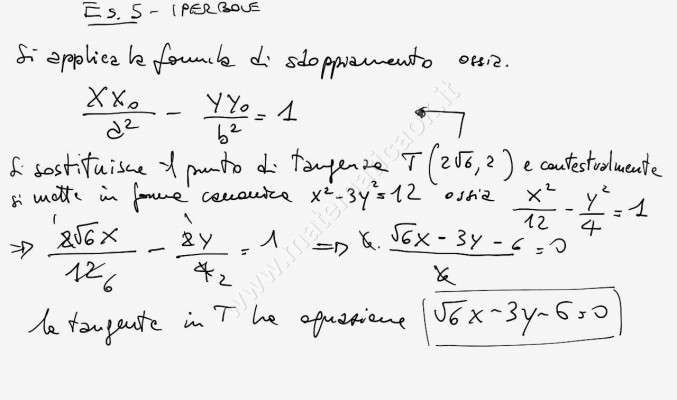 Es. 5 - IPERBOLE
Si applica la formula di sdoppiamento ossia.
XX₀/a² - YY₀/b² = 1
Si sostituisce il punto di tangenza T(2√6, 2) e contestualmente
si mette in forma canonica x² - 3y² = 12 ossia x²/12 - y²/4 = 1
⇒ 2√6x/12 6 - 2y/4 2 = 1 ⇒ 6 · √6x - 3y - 6/6 = 0
la tangente in T ha equazione √6x - 3y - 6 = 0
www.matematicaok.it